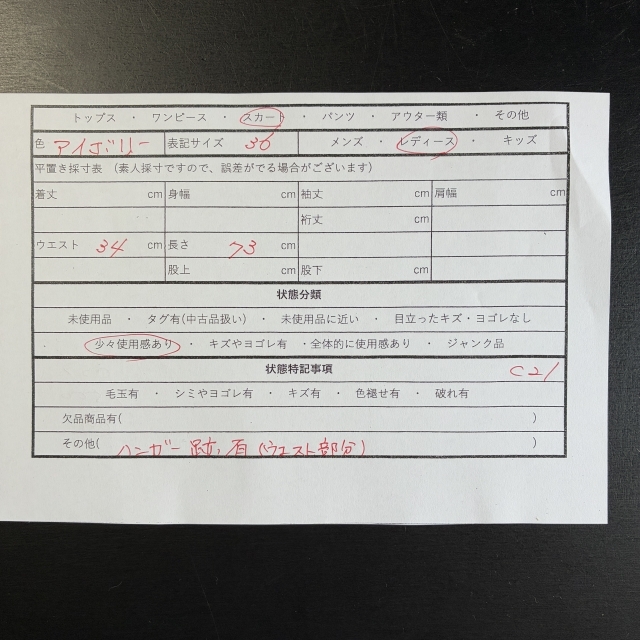 トップス ・ ワンピース ・ スカート ・ パンツ ・ アウター類 ・ その他
色 アイボリー 表記サイズ 36 メンズ ・ レディース ・ キッズ
平置き採寸表 (素人採寸ですので、誤差がでる場合がございます)
着丈 cm 身幅 cm 袖丈 cm 肩幅 cm
裄丈 cm
ウエスト 34 cm 長さ 73 cm
股上 cm 股下 cm
状態分類
未使用品 ・ タグ有(中古品扱い) ・ 未使用品に近い ・ 目立ったキズ・ヨゴレなし
少々使用感あり ・ キズやヨゴレ有 ・全体的に使用感あり ・ ジャンク品
状態特記事項 C21
毛玉有 ・ シミやヨゴレ有 ・ キズ有 ・ 色褪せ有 ・ 破れ有
欠品商品有( )
その他( ハンガー跡有(ウエスト部分) )